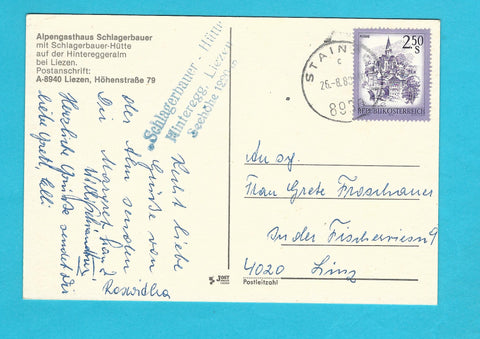 Alpengasthaus Schlagerbauer
mit Schlagerbauer-Hütte
auf der Hintereggeralm
bei Liezen.
Postanschrift:
A-8940 Liezen, Höhenstraße 79
Schlagerbauer - Hütte
Hinteregg, Liezen
Seehöhe
Recht liebe
Grüße von
der Alm senden
Dir Margret
Roswitha
Herzliche Grüße sendet Dir
liebe Gretl,
STAIN
c
26.-8.80
89
2.50
S
REPUBLIK ÖSTERREICH
An sg.
Frau Grete Froschauer
In der Fischerwies'n 9
4020 Linz
Postleitzahl